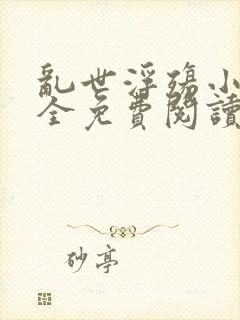 亂世浮殤小
全免費閱讀
砂亭